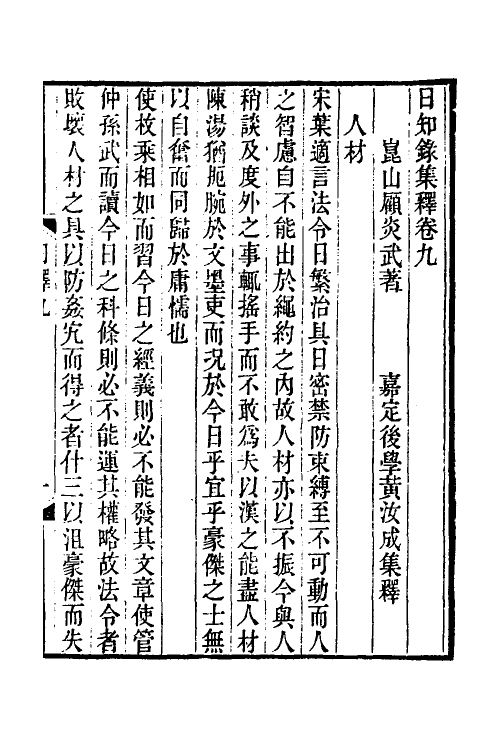 日知錄集釋卷九
崑山顧炎武著　嘉定後學黃汝成集釋
人材
宋葉適言法令日繁治具日密禁防束縛至不可動而人
之智慮自不能出於繩約之內故人材亦以不振今與人
稍談及度外之事輒搖手而不敢爲夫以漢之能盡人材
陳湯猶扼腕於文墨吏而況於今日乎宜乎豪傑之士無
以自奮而同歸於庸懦也
使枚乘相如而習今日之經義則必不能發其文章使管
仲孫武而讀今日之科條則必不能運其權略故法令者
敗壞人材之具以防姦宄而得之者什三以沮豪傑而失
釋九
一